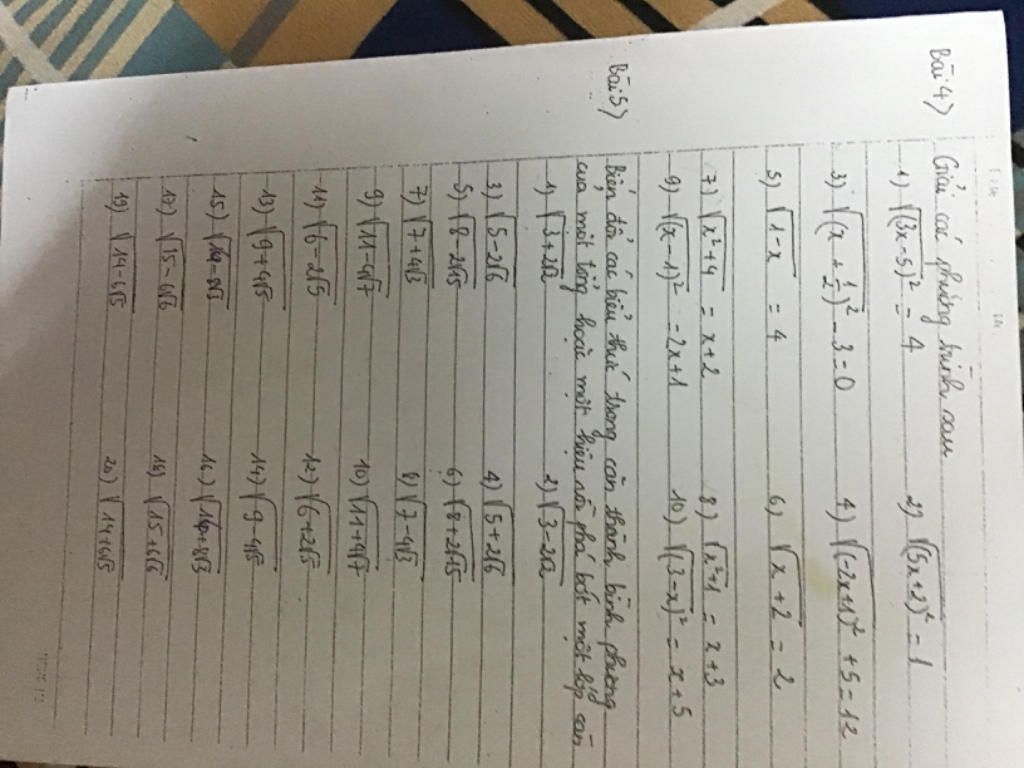 Bài 4) Giải các phương trình sau
1) √(3x-5)² = 4 2) √(5x+2)² = 1
3) √(x+1/2)² - 3 = 0 4) √(-2x+1)² + 5 = 12
5) √1-x = 4 6) √x+2 = 2
7) √x²+4 = x+2 8) √x²+1 = x+3
9) √(x-1)² = 2x+1 10) √(3-x)² = x+5
Bài 5) Biến đổi các biểu thức trong căn thành bình phương
của một tổng hoặc một hiệu rồi phá bớt một lớp căn
1) √3+2√2 2) √3-2√2
3) √5-2√6 4) √5+2√6
5) √8-2√15 6) √8+2√15
7) √7+4√3 8) √7-4√3
9) √11-4√7 10) √11+4√7
11) √6-2√5 12) √6+2√5
13) √9+4√5 14) √9-4√5
15) 16)
17) √15-6√6 18) √15+6√6
19) √14-6√5 20) √14+6√5